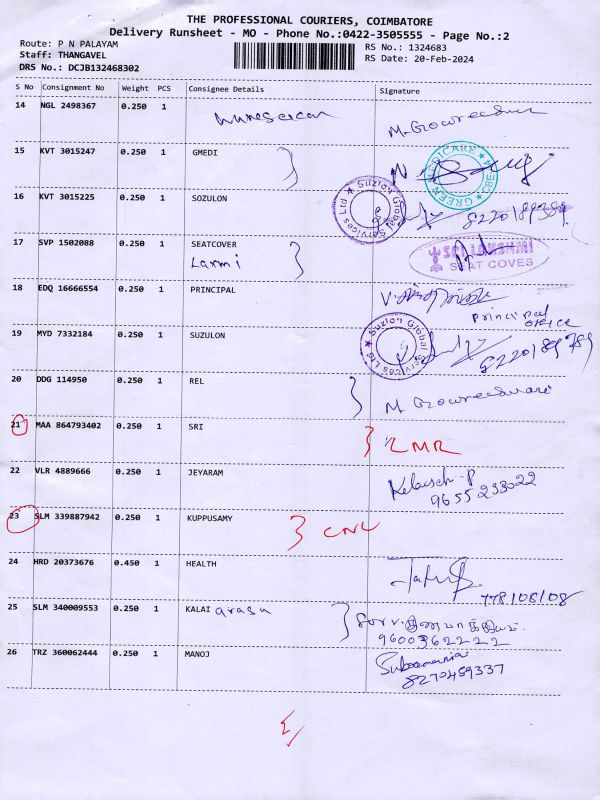 THE PROFESSIONAL COURIERS, COIMBATORE
Delivery Runsheet - MO - Phone No.:0422-3505555 - Page No.:2
Route: P N PALAYAM
RS No.: 1324683
Staff: THANGAVEL
RS Date: 20-Feb-2024
DRS No.: DCJB132468302
S No Consignment No Weight PCS Consignee Details Signature
14 NGL 2498367 0.250 1
15 KVT 3015247 0.250 1 GMEDI
GREEN MEDICARE CBE
16 KVT 3015225 0.250 1 SOZULON
Suzlon Global Services Ltd
17 SVP 1502088 0.250 1 SEATCOVER
Laxmi
SRI LAKSHMI
SEAT COVES
18 EDQ 16666554 0.250 1 PRINCIPAL
Principal
office
19 MYD 7332184 0.250 1 SUZULON
Suzlon Global Services Ltd
8220189789
20 DDG 114950 0.250 1 REL
M Gowreeswari
21 MAA 864793402 0.250 1 SRI
LMR
22 VLR 4889666 0.250 1 JEYARAM
9655233022
23 SLM 339887942 0.250 1 KUPPUSAMY
CNL
24 HRD 20373676 0.450 1 HEALTH
778108108
25 SLM 340009553 0.250 1 KALAI arasu
9600362222
26 TRZ 360062444 0.250 1 MANOJ
8270459337